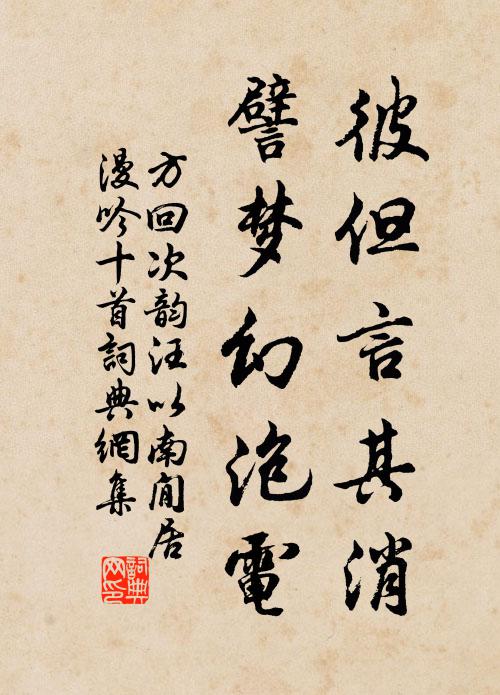 彼但言其消
譬梦幻泡電
方回次韵汪以南閒居
漫吟十首詞典網集
詞典网印